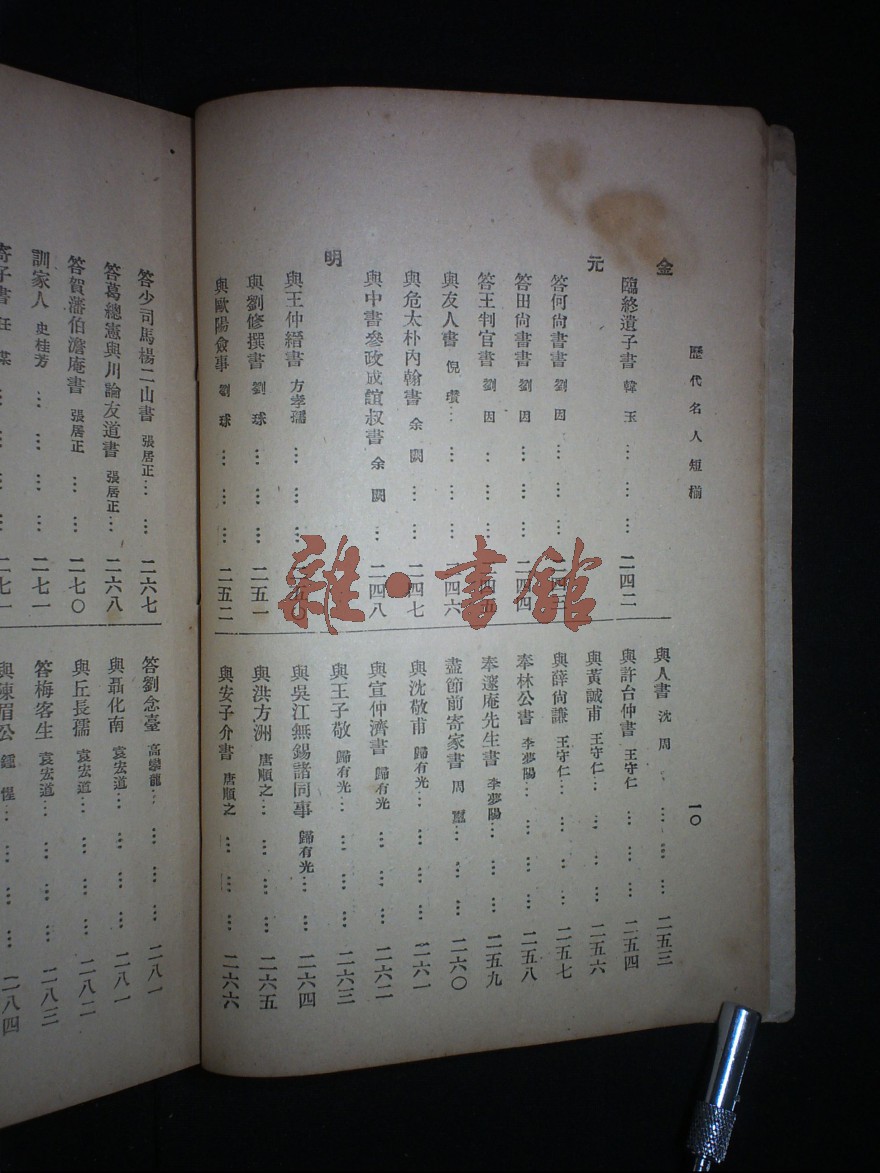 歷代名人短柬
一〇
金
臨終遺子書 韓玉… … … 二四二
元
答何尙書書 劉因… … … 二四三
答田尙書書 劉因… … … 二四四
答王判官書 劉因… … … 二四五
與友人書 倪瓚… … … 二四六
與危太朴內翰書 余闕… … 二四七
與中書參政成誼叔書 余闕… 二四八
明
與王仲縉書 方孝孺… … … 二五〇
與劉修撰書 劉球… … … 二五一
與歐陽僉事 劉球… … … 二五二
與人書 沈周… … … … 二五三
與許台仲書 王守仁… … … 二五四
與黃誠甫 王守仁… … … 二五六
與薛尙謙 王守仁… … … 二五七
奉林公書 李夢陽… … … 二五八
奉邃庵先生書 李夢陽… … … 二五九
盡節前寄家書 周… … … 二六〇
與沈敬甫 歸有光… … … 二六一
與宣仲濟書 歸有光… … … 二六二
與王子敬 歸有光… … … 二六三
與吳江無錫諸同事 歸有光… … 二六四
與洪方洲 唐順之… … … 二六五
與安子介書 唐順之… … … 二六六
答少司馬楊二山書 張居正… … 二六七
答葛總憲與川論友道書 張居正… 二六八
答賀瀋伯澹庵書 張居正… … 二七〇
訓家人 史桂芳… … … … 二七一
寄子書 任… … … 二七一
答劉念臺 高攀龍… … … … 二八一
與聶化南 袁宏道… … … … 二八一
與丘長孺 袁宏道… … … … 二八二
答梅客生 袁宏道… … … … 二八三
與陳眉公 鍾惺… … … … 二八四
雜·書館